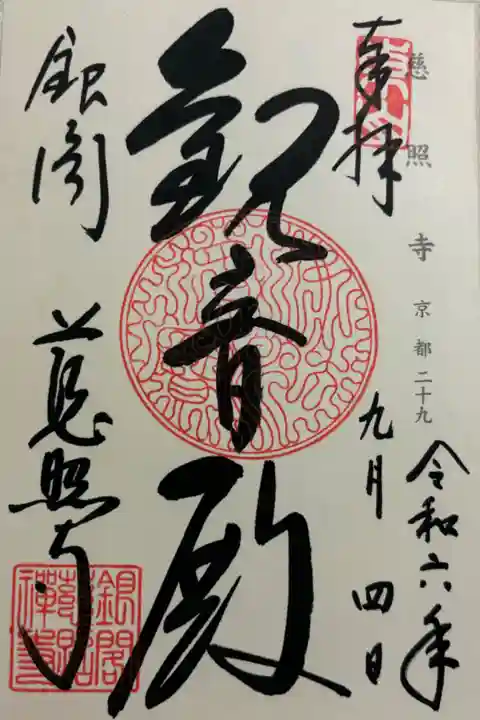 奉拝
慈照寺 京都二十九
令和六年
九月四日
観音殿
銀閣
慈照寺
銀閣
慈照
禅寺